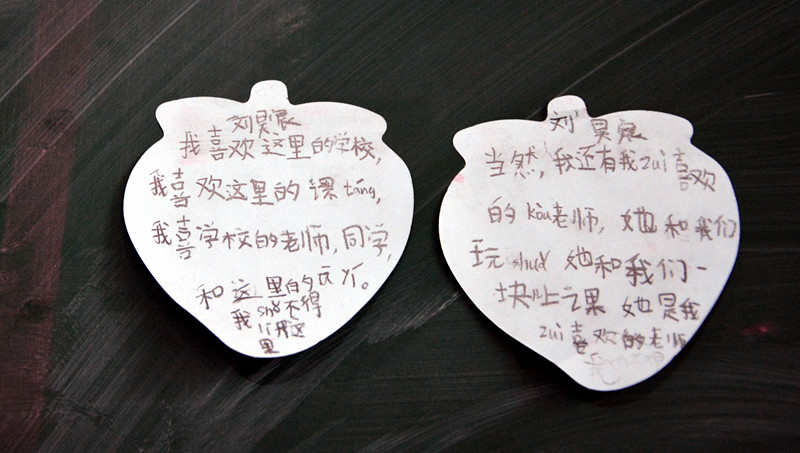 刘昊宸
我喜欢这里的学校,
我喜欢这里的课táng,
我喜学校的老师,同学,
和这里的
我shě不得
这
里
刘昊宸
当然,我还有我zuì喜欢
的kòu老师,她和我们
玩shuǎ她和我们一
块上课她是我
zuì喜欢的老师